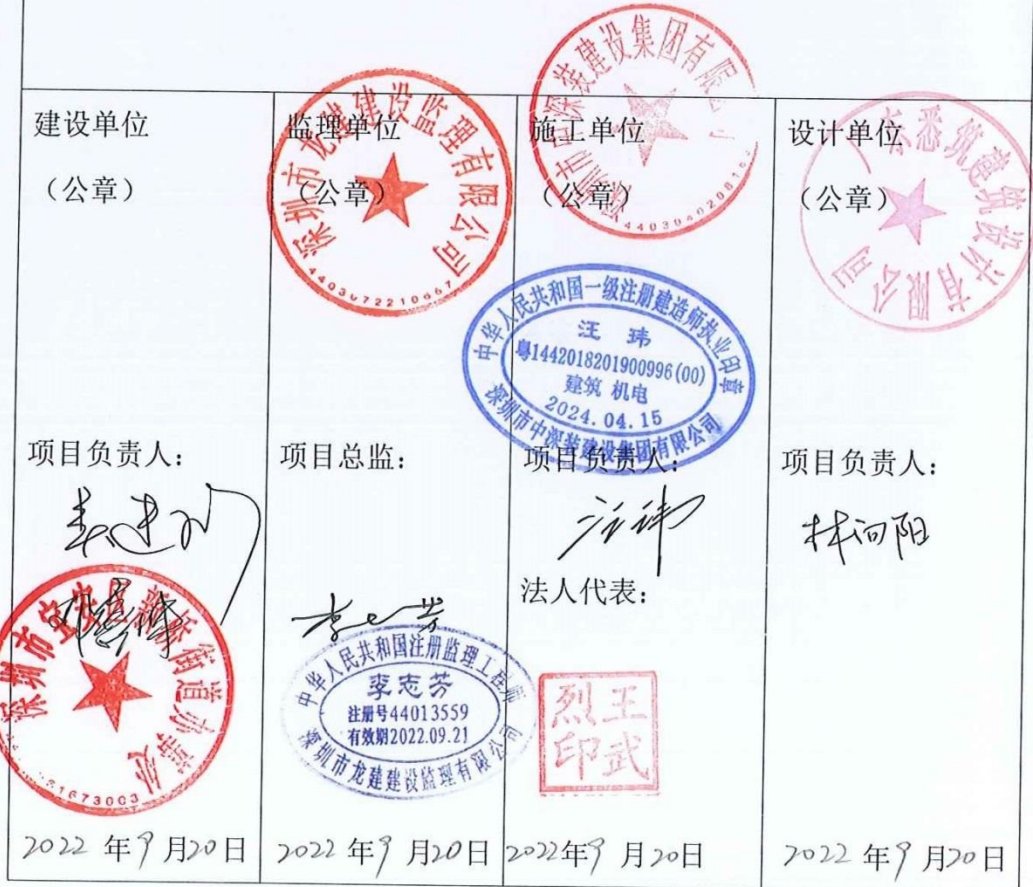 建设单位
（公章）
项目负责人：
深圳市宝安区新桥街道办事处
2022年9月20日
监理单位
（公章）
深圳市龙建建设监理有限公司
项目总监：
李志芳
中华人民共和国注册监理工程师
李志芳
注册号44013559
有效期2022.09.21
深圳市龙建建设监理有限公司
2022年9月20日
施工单位
（公章）
深圳市中深装建设集团有限公司
中华人民共和国一级注册建造师执业印章
汪玮
粤1442018201900996(00)
建筑 机电
2024.04.15
深圳市中深装建设集团有限公司
项目负责人：
汪玮
法人代表：
王武
烈印
2022年9月20日
设计单位
（公章）
悉筑建筑设计有限公司
项目负责人：
林向阳
2022年9月20日